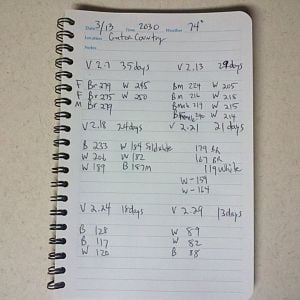 Date 3/13 Time 2030 Weather 74°
Location Gator Country
Notes
V 2.7 35 days V 2.13 29 days
F Br 279 W 245 Bm 224 W 205
F Br 275 W 250 Bm 216 W 215
M Br 279 214 W 215
240 W 214
V 2.18 24 days V 2.21 21 days
B 233 W 184 179 BR
W 206 W 182 167 BR
W 189 B 187m 119 White
W - 159
W - 164
V 2.24 18 days V 2.29 13 days
B 128 W 89
B 117 W 82
W 120 B 88